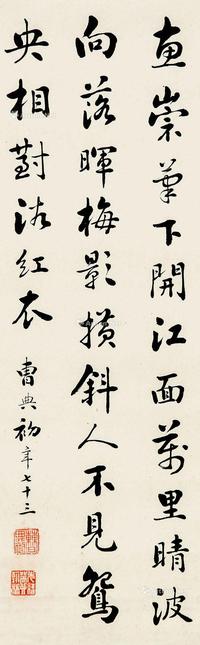 惠崇筆下開江面萬里晴波
向落暉梅影橫斜人不見鴛
央相對浴紅衣
曹典初年七十三